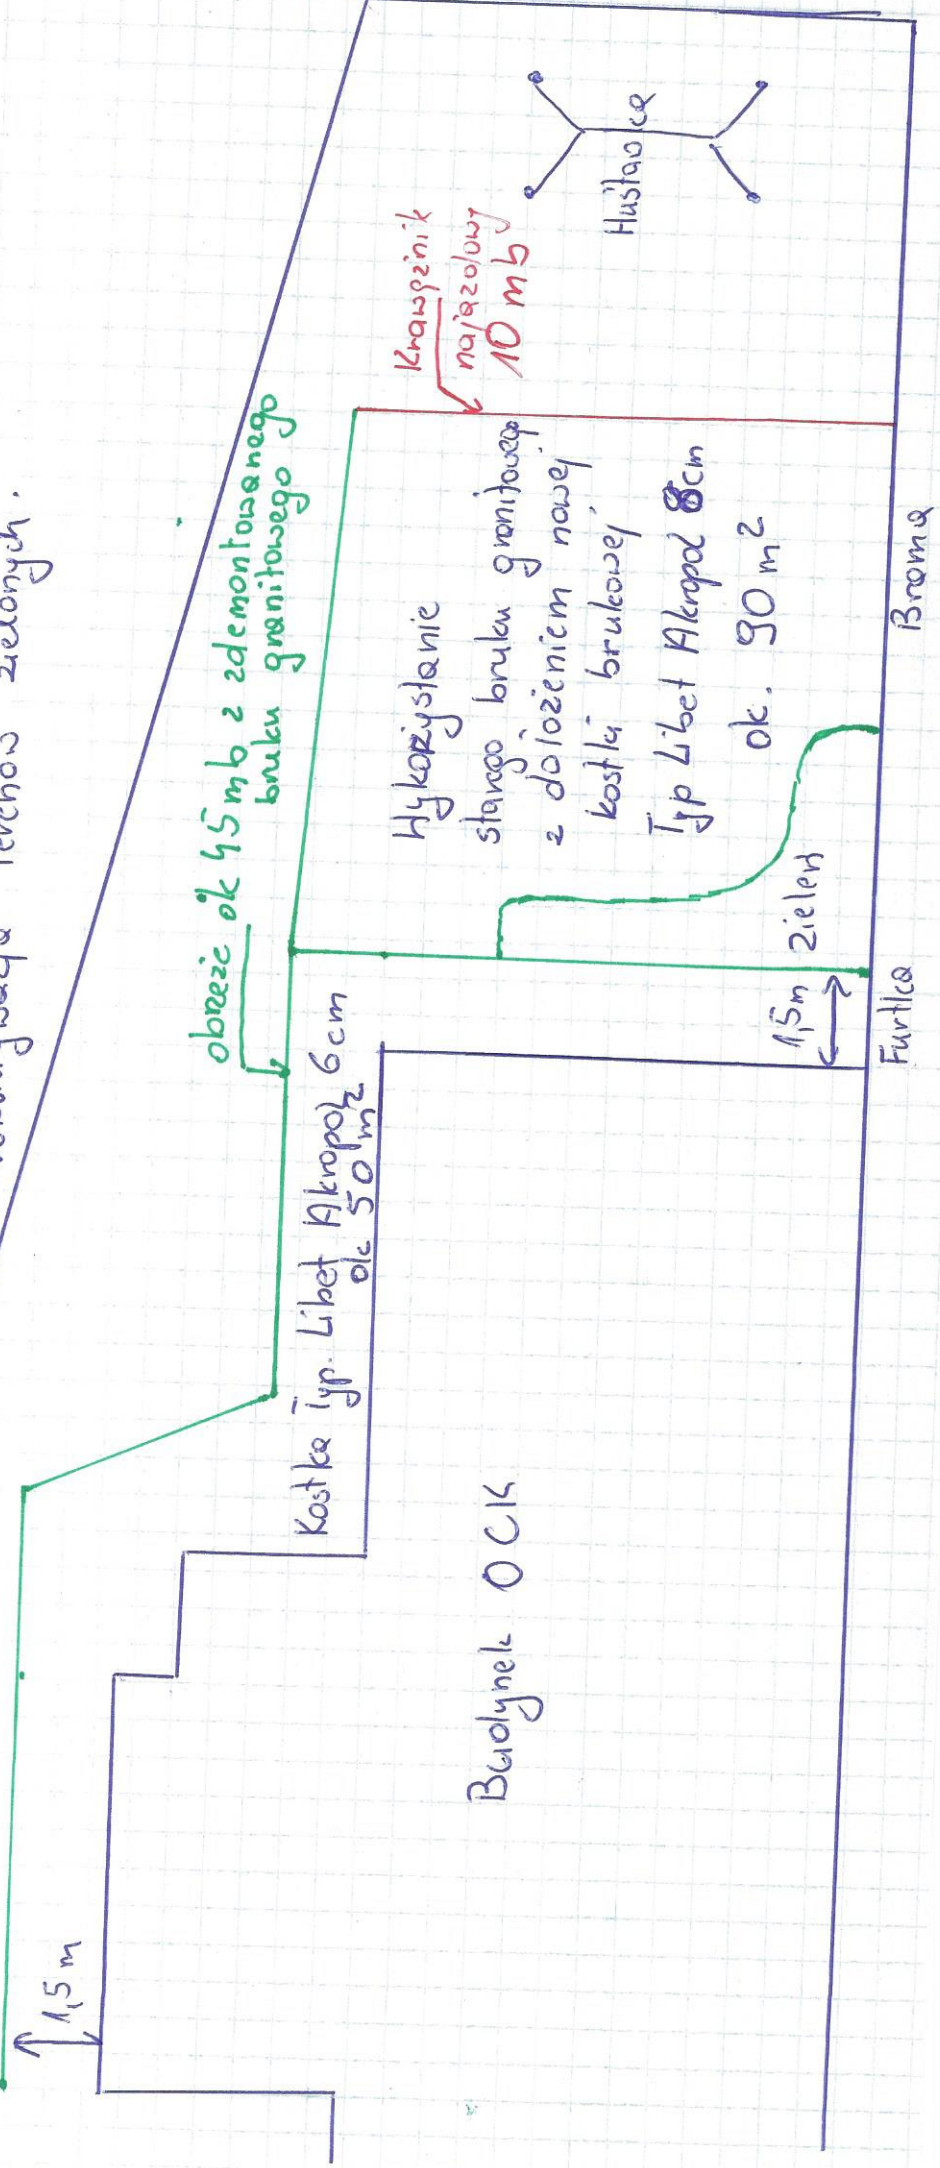 terenów zielonych.
obrzeże ok 45 mb z zdemontowanego
bruku granitowego
Krawężnik
najazdowy
10 mb
Huśtawka
Wykożystanie
starego bruku granitowego
z dołożeniem nowej
kostki brukowej
Typ Libet Akropol 8cm
ok. 90 m2
Kostka Typ. Libet Akropol 6cm
ok 50 m2
1,5 m
Budynek OCK
1,5m
Zieleń
Furtka
Brama